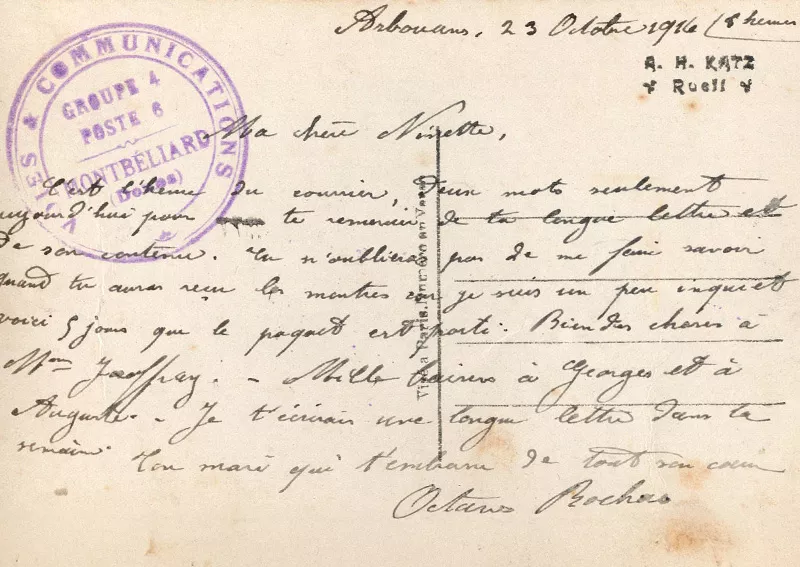 Arbouans, 23 Octobre 1916 (8 heures
A. H. KATZ
Rueil
VOIES & COMMUNICATIONS
GROUPE 4
POSTE 6
MONTBÉLIARD
(Doubs)
Ma chère Ninette,
C'est l'heure du courrier, deux mots seulement
aujourd'hui pour te remercier de ta longue lettre et
de son contenu. Tu n'oublieras pas de me faire savoir
quand tu auras reçu les montres car je suis un peu inquiet
voici 5 jours que le paquet est parti. Bien des choses à
Mme Jaoffray. - Mille baisers à Georges et à
Auguste. - Je t'écrirais une longue lettre dans la
semaine.
Ton mari qui t'embrasse de tout son cœur
Octave Rochas